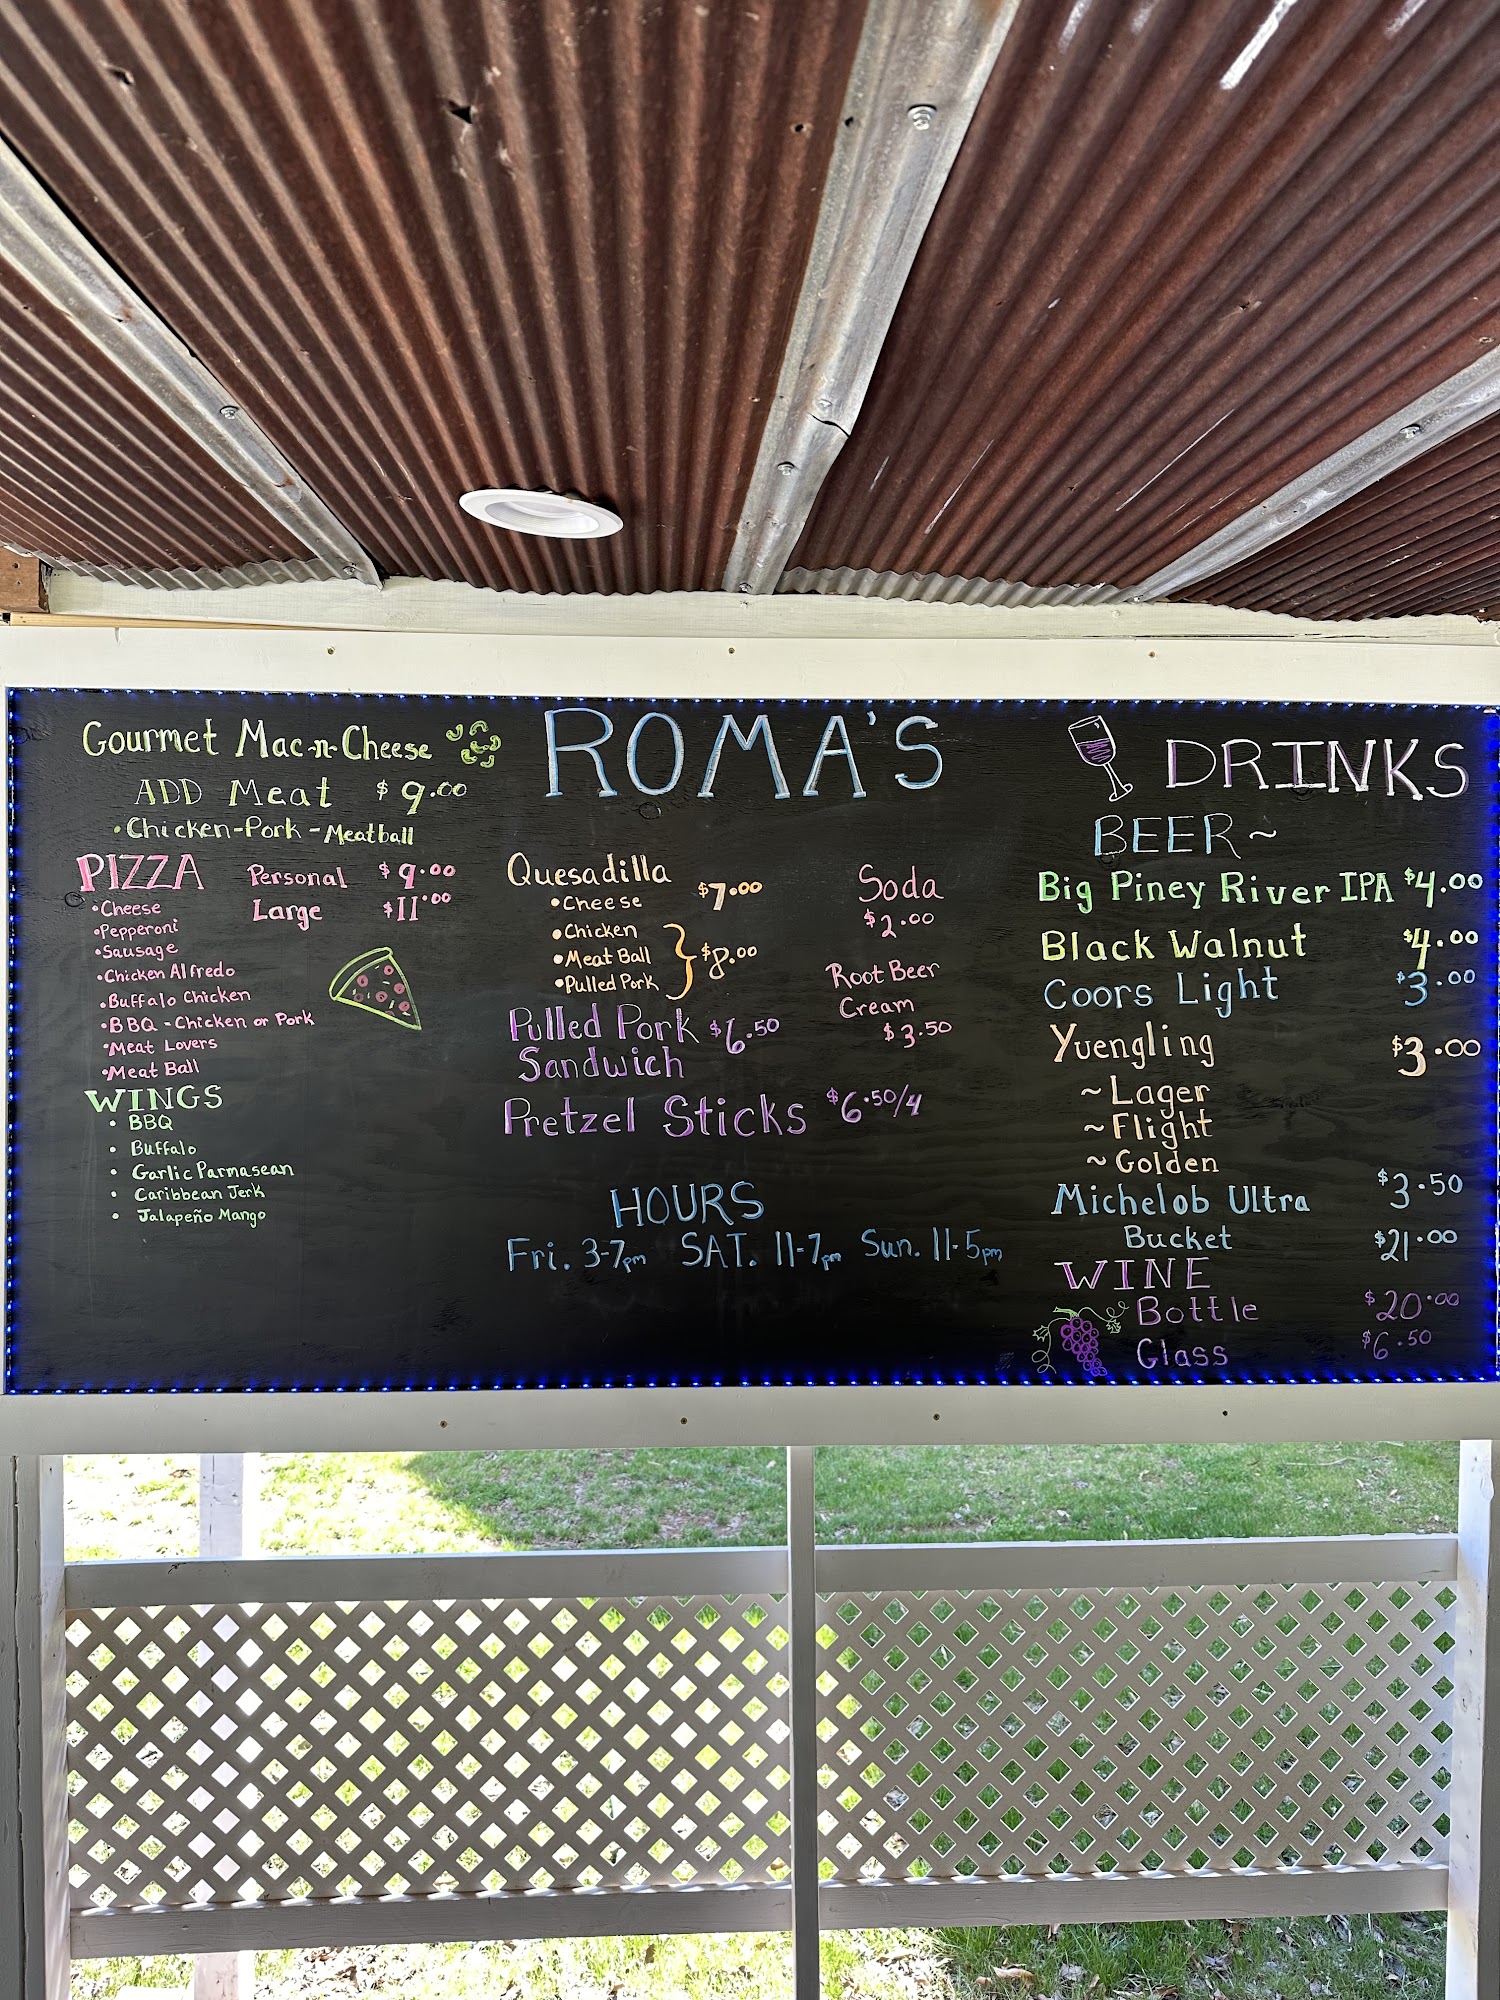 ROMA'S
Gourmet Mac-n-Cheese
ADD Meat $9.00
•Chicken-Pork-Meatball
PIZZA Personal $9.00
Large $11.00
•Cheese
•Pepperoni
•Sausage
•Chicken Alfredo
•Buffalo Chicken
•BBQ-Chicken or Pork
•Meat Lovers
•Meat Ball
WINGS
• BBQ
• Buffalo
• Garlic Parmasean
• Caribbean Jerk
• Jalapeño Mango
Quesadilla
•Cheese $7.00
•Chicken
•Meat Ball $8.00
•Pulled Pork
Pulled Pork $6.50
Sandwich
Pretzel Sticks $6.50/4
Soda
$2.00
Root Beer
Cream
$3.50
HOURS
Fri. 3-7pm SAT. 11-7pm Sun. 11-5pm
DRINKS
BEER~
Big Piney River IPA $4.00
Black Walnut $4.00
Coors Light $3.00
Yuengling $3.00
~Lager
~Flight
~Golden
Michelob Ultra $3.50
Bucket $21.00
WINE
Bottle $20.00
Glass $6.50